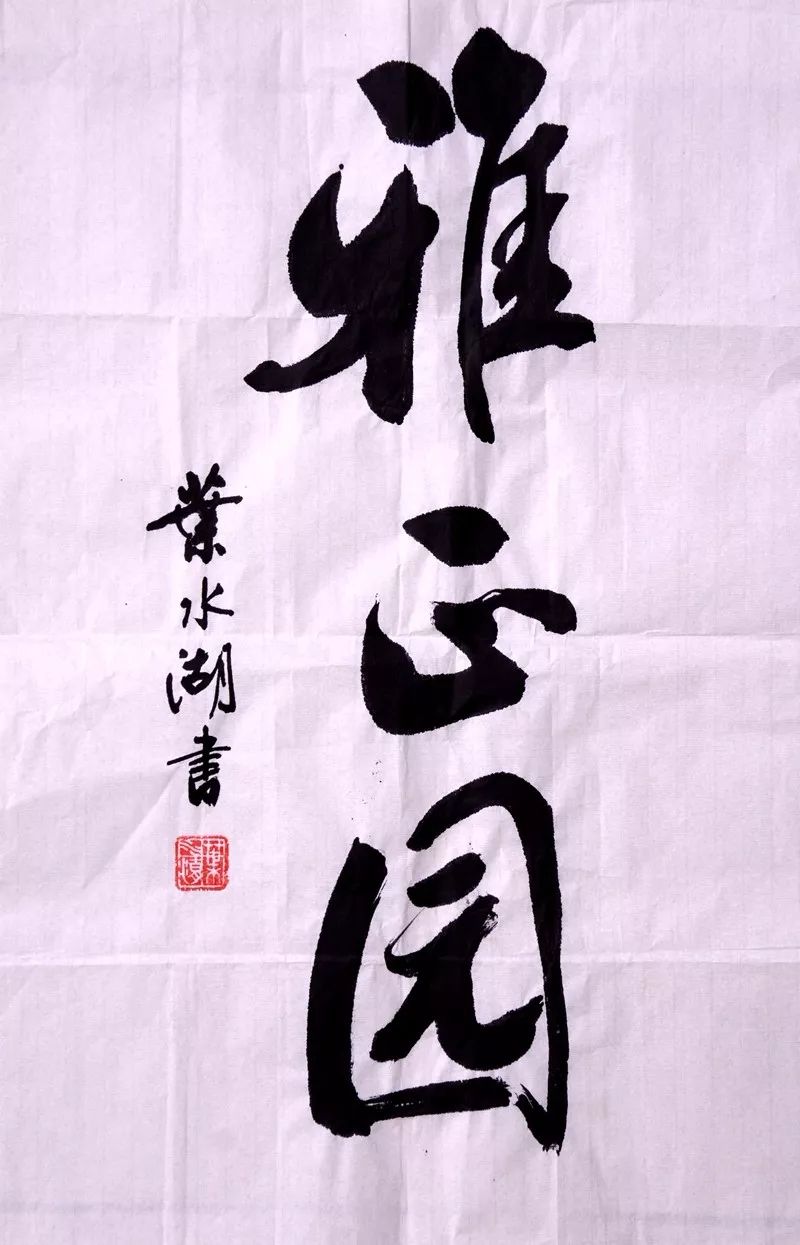 雅正园
葉水湖書